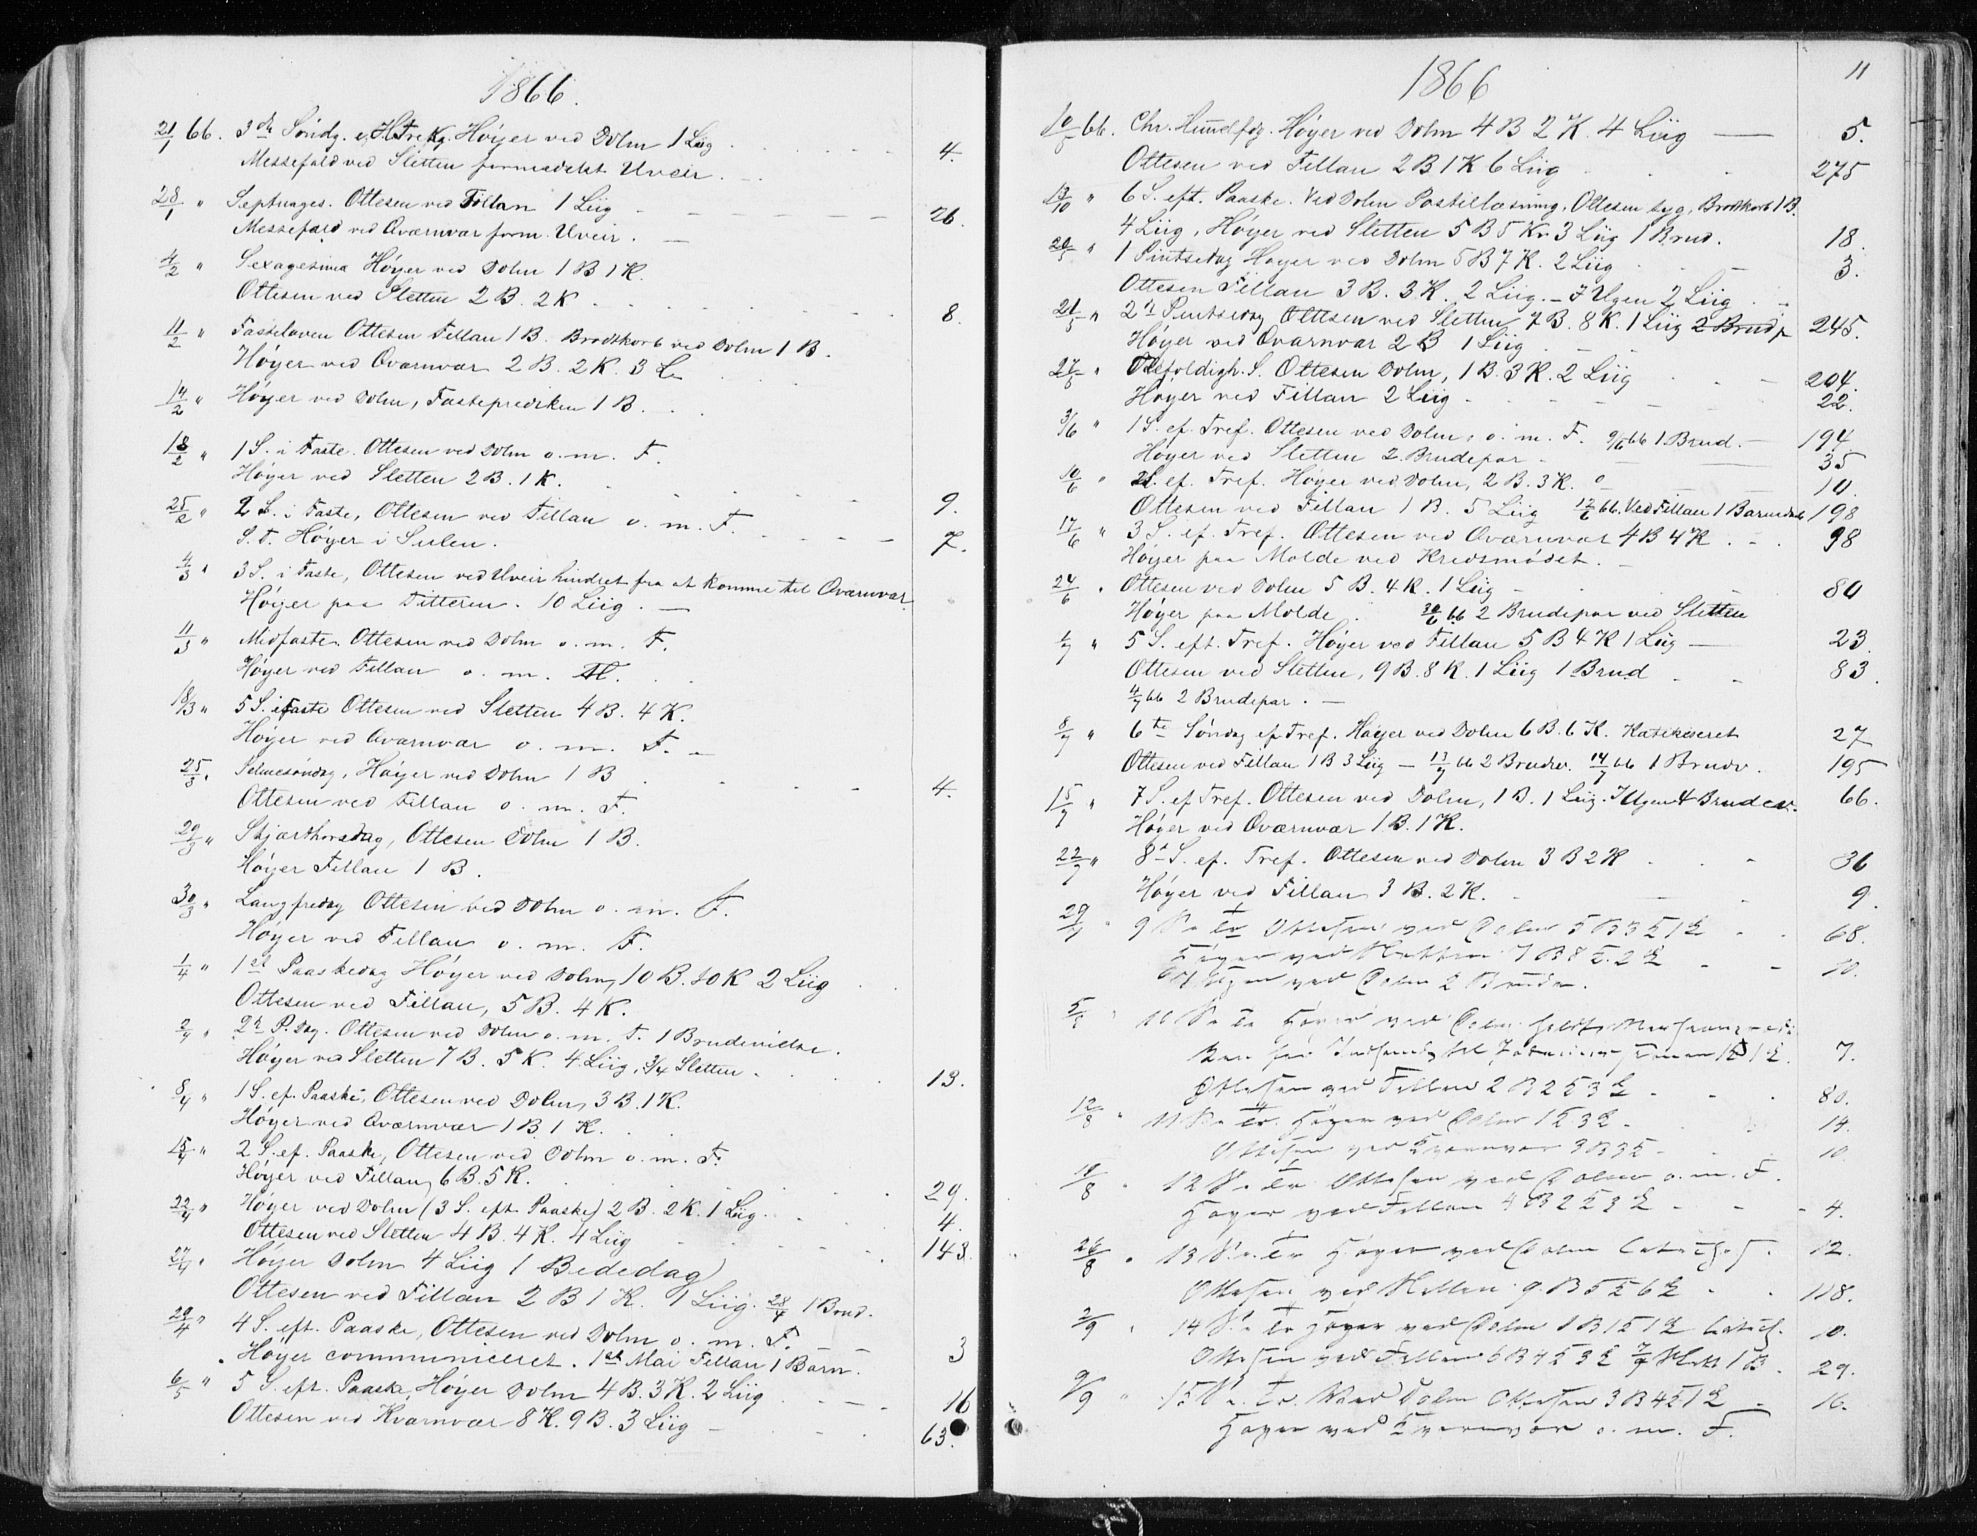 1866.
21/1 66. 3die Søndg. e. H. Tre Kg. Høyer ved Dolm 1 Liig . . . 4.
Messefald ved Sletten formedelst Uveir.
28/1 " Septuages. Ottesen ved Fillan 1 Liig 26.
Messefald ved Qværnvær form. Uveir.
4/2 " Sexagesima Høyer ved Dolm 1 B 1 K.
Ottesen ved Sletten 2 B. 2 K 8.
11/2 " Fastelaven Ottesen Fillan 1 B. Brodtkorb ved Dolm 1 B.
Høyer ved Qværnvær 2 B. 2 K. 3 L.
14/2 " Høyer ved Dolm, Fasteprediken 1 B.
18/2 " 1 S. i Faste. Ottesen ved Dolm o. m. F.
Høyer ved Sletten 2 B. 1 K. 9.
25/2 " 2 S. i Faste, Ottesen ved Fillan o. m. F. 7.
S. T. Høyer i Sulen.
4/3 " 3 S. i Faste, Ottesen ved Uveir hindret fra at komme til Qværnvær.
Høyer paa Titteren. 10 Liig.
11/3 " Midfaste. Ottesen ved Dolm o. m. F.
Høyer ved Fillan o. m.
18/3 " 5 S. i Faste Ottesen ved Sletten 4 B. 4 K.
Høyer ved Qværnvær o. m. F.
25/3 " Palmesøndag, Høyer ved Dolm 1 B 4.
Ottesen ved Fillan o. m. F.
29/3 " Skjærthorsdag, Ottesen Dolm 1 B.
Høyer Fillan 1 B.
30/3 " Langfredag Ottesen ved Dolm o. m. F.
Høyer ved Fillan o. m. F.
1/4 " 1st Paaskedag Høyer ved Dolm, 10 B. 10 K 2 Liig
Ottesen ved Fillan, 5 B. 4 K.
2/4 " 2n P. Dag. Ottesen ved Dolm o. m. F. 1 Brudevielse.
Høyer ved Sletten 7 B. 5 K. 4 Liig, 3/4 Sletten 13.
8/4 " 1 S. ef. Paaske, Ottesen ved Dolm, 3 B. 1 K.
Høyer ved Qværnvær 1 B 1 K.
15/4 " 2 S. ef. Paaske, Ottesen ved Dolm o. m. F.
Høyer ved Fillan, 6 B. 5 K. 29.
22/4 " Høyer ved Dolm (3 S. eft. Paaske) 2 B. 2 K. 1 Liig. 4.
Ottesen ved Sletten 4 B. 4 K. 4 Liig 143.
27/4 " Høyer Dolm 4 Liig (Bededag)
Ottesen ved Fillan 2 B 1 K. 1 Liig. 28/4 1 Brud.
29/4 " 4 S. eft. Paaske, Ottesen ved Dolm o. m. F. 3
Høyer communiceret. 1st Mai Fillan 1 Barn.
6/5 " 5 S. eft. Paaske, Høyer Dolm 4 B. 3 K. 2 Liig 16
Ottesen ved Kvarnvær 8 K. 9 B. 3 Liig 63.
1866
11
10/5 66. Chr. Himelfdg. Høyer ved Dolm 4 B 2 K. 4 Liig 5.
Ottesen ved Fillan 2 B 1 K 6 Liig 275
" 6 S. eft. Paaske. Ved Dolm Postillæsning, Ottesen syg, Brodtkorb 1 B.
4 Liig, Høyer ved Sletten 5 B 5 K. 3 Liig 1 Brud. 18.
20/5 " 1 Pintsedag Høyer ved Dolm 5 B 7 K. 2 Liig 3.
Ottesen Fillan 3 B. 3 K. 2 Liig. – I Ugen 2 Liig
21/5 " 2n Pintsedag Ottesen ved Sletten 7 B. 8 K. 1 Liig 2 Brudp 245.
Høyer ved Qvarnvær 2 B 1 Liig
27/5 " Trefoldigh. S. Ottesen Dolm, 1 B. 3 K. 2 Liig 204.
Høyer ved Fillan 2 Liig 22.
3/6 " 1 S. ef. Tref. Ottesen ved Dolm, o. m. F. 9/6 66 1 Brud. 194
Høyer ved Sletten 2 Brudepar 35
10/6 " 2 S. ef. Tref. Høyer ved Dolm, 2 B. 3 K. 10.
Ottesen ved Fillan 1 B. 5 Liig 12/6 66. Ved Fillan 1 Barnedaab 198
17/6 " 3 S. ef. Tref. Ottesen ved Qværnvær 4 B 4 K 98
Høyer paa Molde ved Kredsmødet.
24/6 " Ottesen ved Dolm 5 B. 4 K. 1 Liig 80
Høyer paa Molde. 30/6 66 2 Brudepar ved Sletten
1/7 " 5 S. eft. Tref. Høyer ved Fillan 5 B 4 K 1 Liig 23
Ottesen ved Sletten, 9 B. 8 K. 1 Liig 1 Brud 83
4/7 66 2 Brudepar.
8/7 " 6te Søndag ef Tref. Høyer ved Dolm 6 B. 6 K. Katekiseret 27
Ottesen ved Fillan 1 B 3 Liig – 13/7 66 2 Brudev. 14/7 66 1 Brudv. 195
15/7 " 7 S. ef Tref. Ottesen ved Dolm, 1 B. 1 Liig. I Ugen 4 Brudev. 66.
Høyer ved Qværnvær 1 B. 1 K.
22/7 " 8 S. ef. Tref. Ottesen ved Dolm 3 B 2 K 36
Høyer ved Fillan 3 B. 2 K. 9.
29/7 " 9 S. e. Tr Ottesen ved Dolm 5 B 3 K 1 L 68.
Høyer ved Sletten 7 B 8 K. 2 L 10.
I Ugen ved Dolm 2 Brudev.
5/8 " 10 S. e. Tr Høyer ved Dolm 7.
Ottesen ved Fillan 2 B 2 K 3 L 80.
12/8 " 11 S. e. Tr. Høyer ved Dolm 1 K 3 L 14.
Ottesen ved Kvernvær 3 B 3 K 10.
19/8 " 12 S. e. Tr Ottesen ved Dolm o. m. F.
Høyer ved Fillan 4 B 2 K 3 L 4.
26/8 " 13 S. e. Tr Høyer ved Dolm 12.
Ottesen ved Sletten 9 B 5 K 6 L 118.
2/9 " 14 S. e. Tr Høyer ved Dolm 1 B 1 K 1 L 10.
Ottesen ved Fillan 5 B 4 K 3 L 7/9 Slett 1 B. 29.
9/9 " 15 S. e. Tr. Ved Dolm Ottesen 3 B 4 K 1 L 16.
Høyer ved Kvernvær o. m. F.